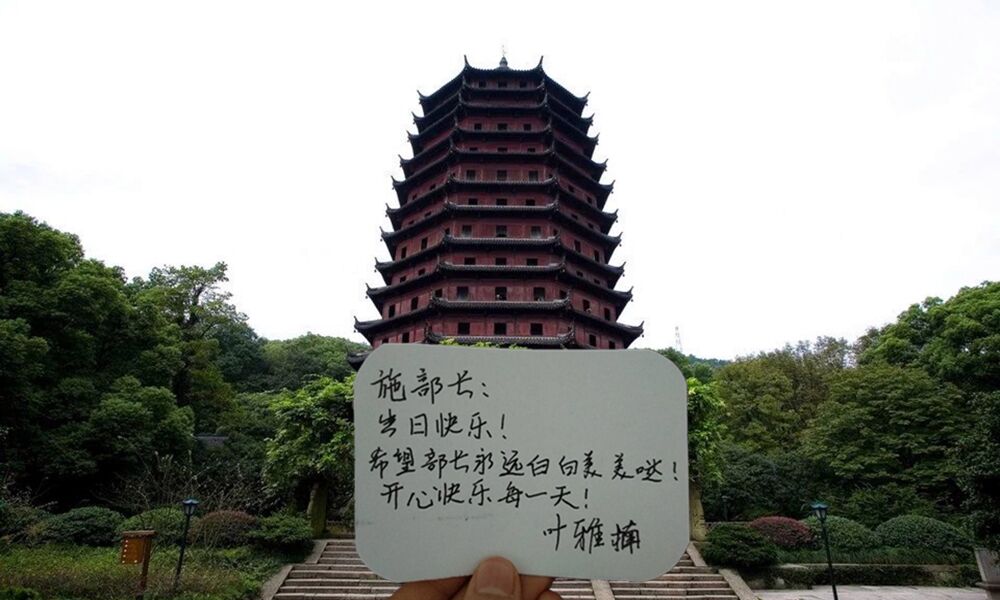 施部长:
生日快乐!
希望部长永远白白美美哒!
开心快乐每一天!
叶雅楠